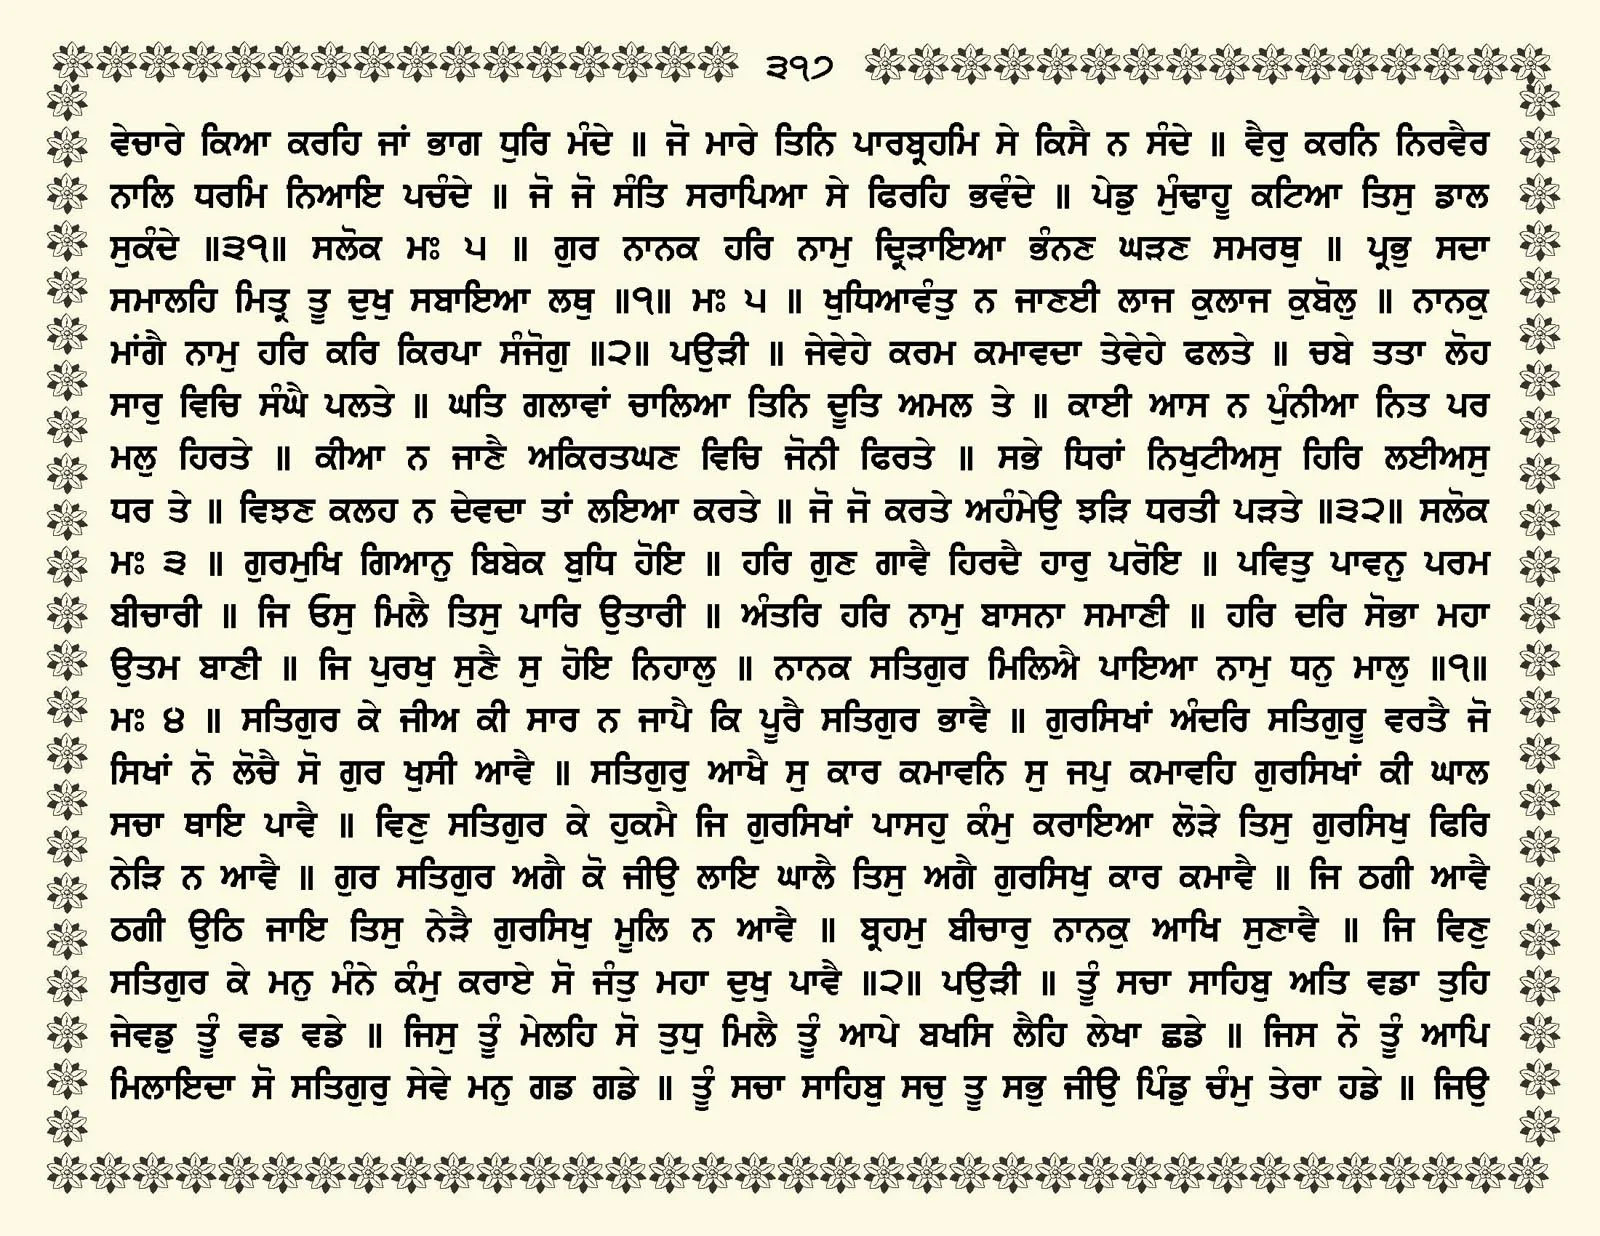 ੩੧੭
ਵੇਚਾਰੇ ਕਿਆ ਕਰਹਿ ਜਾਂ ਭਾਗ ਧੁਰਿ ਮੰਦੇ ॥ ਜੋ ਮਾਰੇ ਤਿਨਿ ਪਾਰਬ੍ਰਹਮਿ ਸੇ ਕਿਸੈ ਨ ਸੰਦੇ ॥ ਵੈਰੁ ਕਰਨਿ ਨਿਰਵੈਰ
ਨਾਲਿ ਧਰਮਿ ਨਿਆਇ ਪਚੰਦੇ ॥ ਜੋ ਜੋ ਸੰਤਿ ਸਰਾਪਿਆ ਸੇ ਫਿਰਹਿ ਭਵੰਦੇ ॥ ਪੇਡੁ ਮੁੰਢਾਹੂ ਕਟਿਆ ਤਿਸੁ ਡਾਲ
ਸੁਕੰਦੇ ॥੩੧॥ ਸਲੋਕ ਮਃ ੫ ॥ ਗੁਰ ਨਾਨਕ ਹਰਿ ਨਾਮੁ ਦ੍ਰਿੜਾਇਆ ਭੰਨਣ ਘੜਣ ਸਮਰਥੁ ॥ ਪ੍ਰਭੁ ਸਦਾ
ਸਮਾਲਹਿ ਮਿਤ੍ਰ ਤੂ ਦੁਖੁ ਸਬਾਇਆ ਲਥੁ ॥੧॥ ਮਃ ੫ ॥ ਖੁਧਿਆਵੰਤੁ ਨ ਜਾਣਈ ਲਾਜ ਕੁਲਾਜ ਕੁਬੋਲੁ ॥ ਨਾਨਕੁ
ਮਾਂਗੈ ਨਾਮੁ ਹਰਿ ਕਰਿ ਕਿਰਪਾ ਸੰਜੋਗੁ ॥੨॥ ਪਉੜੀ ॥ ਜੇਵੇਹੇ ਕਰਮ ਕਮਾਵਦਾ ਤੇਵੇਹੇ ਫਲਤੇ ॥ ਚਬੇ ਤਤਾ ਲੋਹ
ਸਾਰੁ ਵਿਚਿ ਸੰਘੈ ਪਲਤੇ ॥ ਘਤਿ ਗਲਾਵਾਂ ਚਾਲਿਆ ਤਿਨਿ ਦੂਤਿ ਅਮਲ ਤੇ ॥ ਕਾਈ ਆਸ ਨ ਪੁੰਨੀਆ ਨਿਤ ਪਰ
ਮਲੁ ਹਿਰਤੇ ॥ ਕੀਆ ਨ ਜਾਣੈ ਅਕਿਰਤਘਣ ਵਿਚਿ ਜੋਨੀ ਫਿਰਤੇ ॥ ਸਭੇ ਧਿਰਾਂ ਨਿਖੁਟੀਅਸੁ ਹਿਰਿ ਲਈਅਸੁ
ਧਰ ਤੇ ॥ ਵਿਝਣ ਕਲਹ ਨ ਦੇਵਦਾ ਤਾਂ ਲਇਆ ਕਰਤੇ ॥ ਜੋ ਜੋ ਕਰਤੇ ਅਹੰਮੇਉ ਝੜਿ ਧਰਤੀ ਪੜਤੇ ॥੩੨॥ ਸਲੋਕ
ਮਃ ੩ ॥ ਗੁਰਮੁਖਿ ਗਿਆਨੁ ਬਿਬੇਕ ਬੁਧਿ ਹੋਇ ॥ ਹਰਿ ਗੁਣ ਗਾਵੈ ਹਿਰਦੈ ਹਾਰੁ ਪਰੋਇ ॥ ਪਵਿਤੁ ਪਾਵਨੁ ਪਰਮ
ਬੀਚਾਰੀ ॥ ਜਿ ਓਸੁ ਮਿਲੈ ਤਿਸੁ ਪਾਰਿ ਉਤਾਰੀ ॥ ਅੰਤਰਿ ਹਰਿ ਨਾਮੁ ਬਾਸਨਾ ਸਮਾਣੀ ॥ ਹਰਿ ਦਰਿ ਸੋਭਾ ਮਹਾ
ਉਤਮ ਬਾਣੀ ॥ ਜਿ ਪੁਰਖੁ ਸੁਣੈ ਸੁ ਹੋਇ ਨਿਹਾਲੁ ॥ ਨਾਨਕ ਸਤਿਗੁਰ ਮਿਲਿਐ ਪਾਇਆ ਨਾਮੁ ਧਨੁ ਮਾਲੁ ॥੧॥
ਮਃ ੪ ॥ ਸਤਿਗੁਰ ਕੇ ਜੀਅ ਕੀ ਸਾਰ ਨ ਜਾਪੈ ਕਿ ਪੂਰੈ ਸਤਿਗੁਰ ਭਾਵੈ ॥ ਗੁਰਸਿਖਾਂ ਅੰਦਰਿ ਸਤਿਗੁਰੂ ਵਰਤੈ ਜੋ
ਸਿਖਾਂ ਨੋ ਲੋਚੈ ਸੋ ਗੁਰ ਖੁਸੀ ਆਵੈ ॥ ਸਤਿਗੁਰੁ ਆਖੈ ਸੁ ਕਾਰ ਕਮਾਵਨਿ ਸੁ ਜਪੁ ਕਮਾਵਹਿ ਗੁਰਸਿਖਾਂ ਕੀ ਘਾਲ
ਸਚਾ ਥਾਇ ਪਾਵੈ ॥ ਵਿਣੁ ਸਤਿਗੁਰ ਕੇ ਹੁਕਮੈ ਜਿ ਗੁਰਸਿਖਾਂ ਪਾਸਹੁ ਕੰਮੁ ਕਰਾਇਆ ਲੋੜੇ ਤਿਸੁ ਗੁਰਸਿਖੁ ਫਿਰਿ
ਨੇੜਿ ਨ ਆਵੈ ॥ ਗੁਰ ਸਤਿਗੁਰ ਅਗੈ ਕੋ ਜੀਉ ਲਾਇ ਘਾਲੈ ਤਿਸੁ ਅਗੈ ਗੁਰਸਿਖੁ ਕਾਰ ਕਮਾਵੈ ॥ ਜਿ ਠਗੀ ਆਵੈ
ਠਗੀ ਉਠਿ ਜਾਇ ਤਿਸੁ ਨੇੜੈ ਗੁਰਸਿਖੁ ਮੂਲਿ ਨ ਆਵੈ ॥ ਬ੍ਰਹਮੁ ਬੀਚਾਰੁ ਨਾਨਕੁ ਆਖਿ ਸੁਣਾਵੈ ॥ ਜਿ ਵਿਣੁ
ਸਤਿਗੁਰ ਕੇ ਮਨੁ ਮੰਨੇ ਕੰਮੁ ਕਰਾਏ ਸੋ ਜੰਤੁ ਮਹਾ ਦੁਖੁ ਪਾਵੈ ॥੨॥ ਪਉੜੀ ॥ ਤੂੰ ਸਚਾ ਸਾਹਿਬੁ ਅਤਿ ਵਡਾ ਤੁਹਿ
ਜੇਵਡੁ ਤੂੰ ਵਡ ਵਡੇ ॥ ਜਿਸੁ ਤੂੰ ਮੇਲਹਿ ਸੋ ਤੁਧੁ ਮਿਲੈ ਤੂੰ ਆਪੇ ਬਖਸਿ ਲੈਹਿ ਲੇਖਾ ਛਡੇ ॥ ਜਿਸ ਨੋ ਤੂੰ ਆਪਿ
ਮਿਲਾਇਦਾ ਸੋ ਸਤਿਗੁਰੁ ਸੇਵੇ ਮਨੁ ਗਡ ਗਡੇ ॥ ਤੂੰ ਸਚਾ ਸਾਹਿਬੁ ਸਚੁ ਤੂ ਸਭੁ ਜੀਉ ਪਿੰਡੁ ਚੰਮੁ ਤੇਰਾ ਹਡੇ ॥ ਜਿਉ